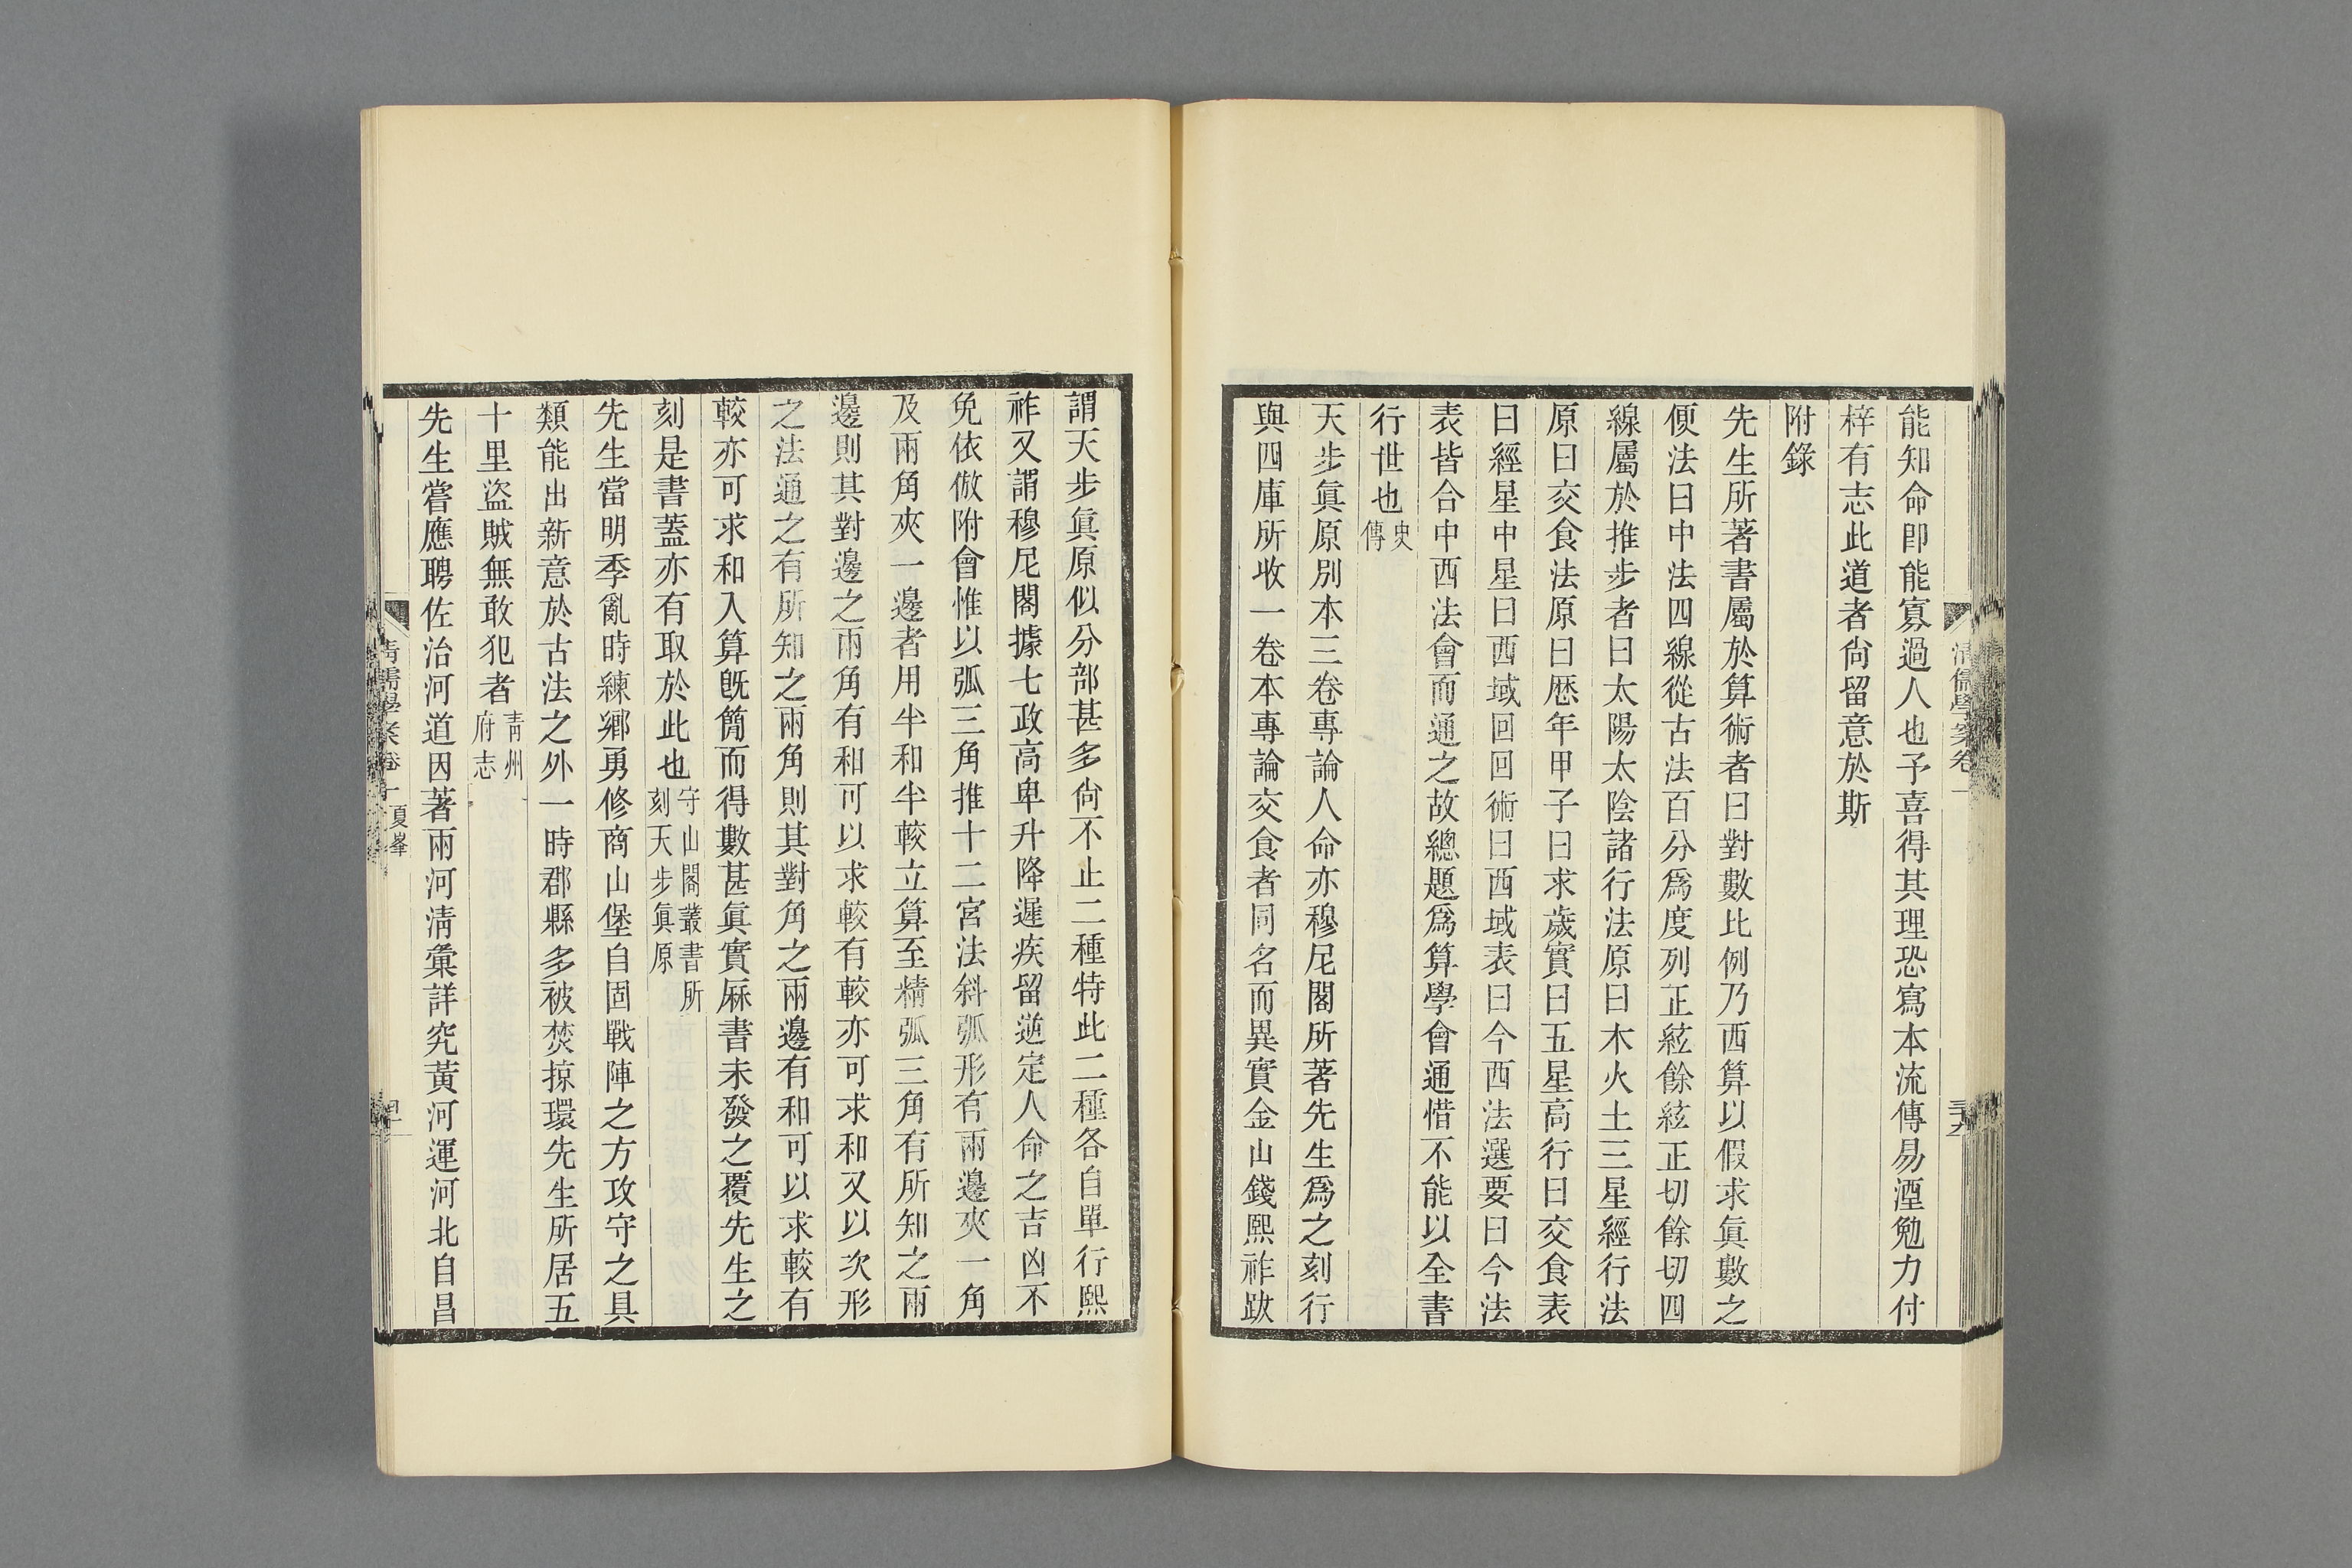 清儒學案卷一
三十九
能知命卽能寡過人也予喜得其理恐寫本流傳易湮勉力付
梓有志此道者尙留意於斯
附錄
先生所著書屬於算術者曰對數比例乃西算以假求眞數之
便法曰中法四線從古法百分爲度列正絃餘絃正切餘切四
線屬於推步者曰太陽太陰諸行法原曰木火土三星經行法
原曰交食法原曰歷年甲子曰求歲實曰五星高行曰交食表
曰經星中星曰西域回回術曰西域表曰今西法選要曰今法
表皆合中西法會而通之故總題爲算學會通惜不能以全書
行世也史傳
天步眞原別本三卷專論人命亦穆尼閣所著先生爲之刻行
與四庫所收一卷本專論交食者同名而異實金山錢熙祚跋
謂天步眞原似分部甚多尙不止二種特此二種各自單行熙
祚又謂穆尼閣據七政高卑升降遲疾留逆定人命之吉凶不
免依倣附會惟以弧三角推十二宮法斜弧形有兩邊夾一角
及兩角夾一邊者用半和半較立算至精弧三角有所知之兩
邊則其對邊之兩角有和可以求較有較亦可求和又以次形
之法通之有所知之兩角則其對角之兩邊有和可以求較有
較亦可求和入算旣簡而得數甚眞實厤書未發之覆先生之
刻是書蓋亦有取於此也守山閣叢書所刻天步眞原
先生當明季亂時練鄉勇修商山堡自固戰陣之方攻守之具
類能出新意於古法之外一時郡縣多被焚掠環先生所居五
十里盜賊無敢犯者靑州府志
先生嘗應聘佐治河道因著兩河淸彙詳究黃河運河北自昌
清儒學案卷一 夏峯